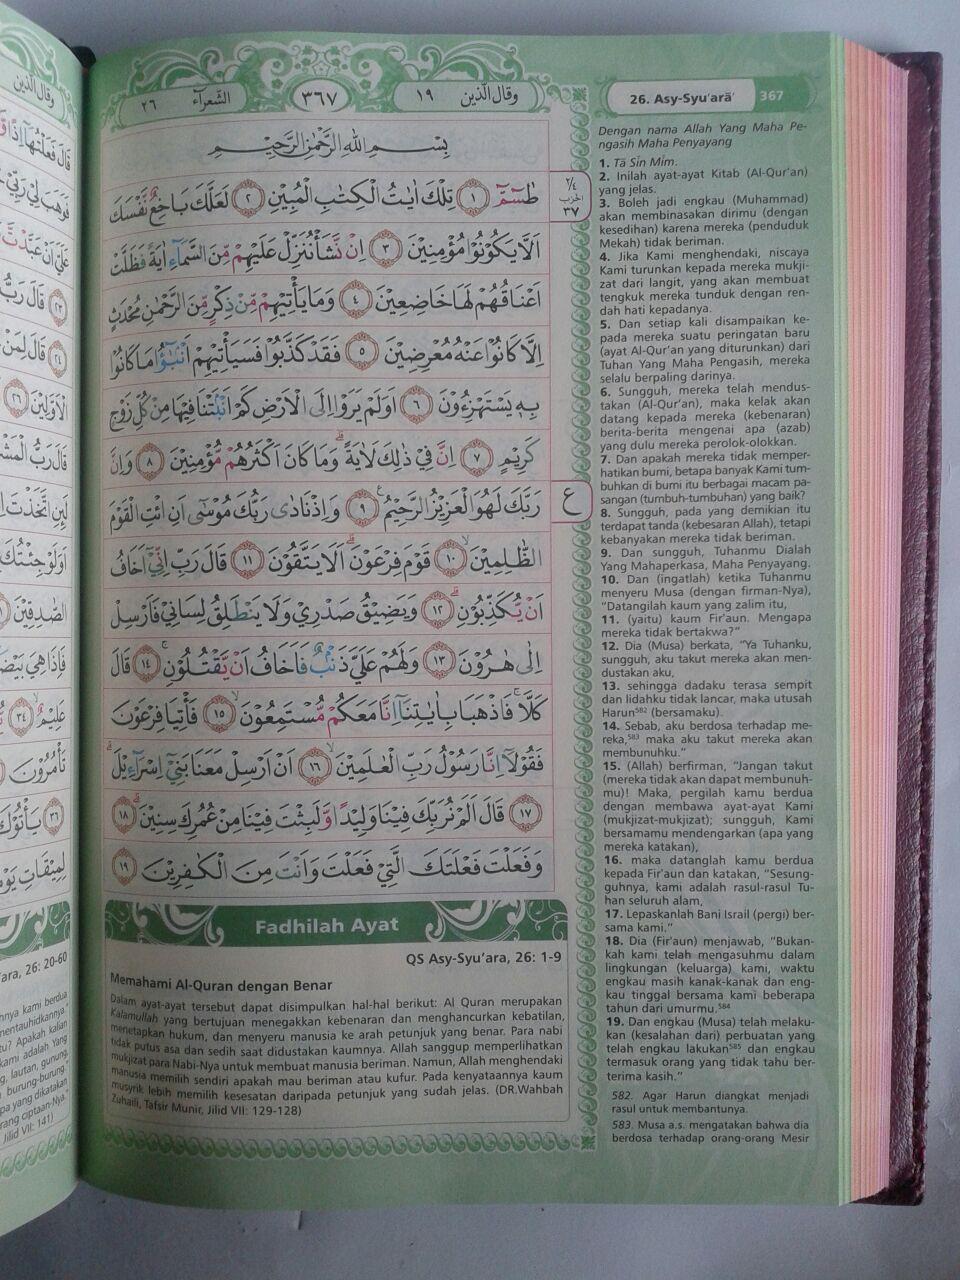 وقال الّذين ١٩
٣٦٧
الشّعرآء ٢٦
بِسْمِ اللّٰهِ الرَّحْمٰنِ الرَّحِيْمِ
طٰسۤمّۤ ١ تِلْكَ اٰيٰتُ الْكِتٰبِ الْمُبِيْنِ ٢ لَعَلَّكَ بَاخِعٌ نَّفْسَكَ
اَلَّا يَكُوْنُوْا مُؤْمِنِيْنَ ٣ اِنْ نَّشَأْ نُنَزِّلْ عَلَيْهِمْ مِّنَ السَّمَاۤءِ اٰيَةً فَظَلَّتْ
اَعْنَاقُهُمْ لَهَا خَاضِعِيْنَ ٤ وَمَا يَأْتِيْهِمْ مِّنْ ذِكْرٍ مِّنَ الرَّحْمٰنِ مُحْدَثٍ
اِلَّا كَانُوْا عَنْهُ مُعْرِضِيْنَ ٥ فَقَدْ كَذَّبُوْا فَسَيَأْتِيْهِمْ اَنْۢبٰۤؤُا مَا كَانُوْا
بِهٖ يَسْتَهْزِءُوْنَ ٦ اَوَلَمْ يَرَوْا اِلَى الْاَرْضِ كَمْ اَنْۢبَتْنَا فِيْهَا مِنْ كُلِّ زَوْجٍ
كَرِيْمٍ ٧ اِنَّ فِيْ ذٰلِكَ لَاٰيَةً ۗ وَمَا كَانَ اَكْثَرُهُمْ مُّؤْمِنِيْنَ ٨ وَاِنَّ
رَبَّكَ لَهُوَ الْعَزِيْزُ الرَّحِيْمُ ࣖ ٩ وَاِذْ نَادٰى رَبُّكَ مُوْسٰٓى اَنِ ائْتِ الْقَوْمَ
الظّٰلِمِيْنَ ۙ ١٠ قَوْمَ فِرْعَوْنَ ۗ اَلَا يَتَّقُوْنَ ١١ قَالَ رَبِّ اِنِّيْٓ اَخَافُ
اَنْ يُّكَذِّبُوْنِ ۗ ١٢ وَيَضِيْقُ صَدْرِيْ وَلَا يَنْطَلِقُ لِسَانِيْ فَاَرْسِلْ
اِلٰى هٰرُوْنَ ١٣ وَلَهُمْ عَلَيَّ ذَنْۢبٌ فَاَخَافُ اَنْ يَّقْتُلُوْنِ ۚ ١٤ قَالَ
كَلَّا ۚ فَاذْهَبَا بِاٰيٰتِنَآ اِنَّا مَعَكُمْ مُّسْتَمِعُوْنَ ۙ ١٥ فَأْتِيَا فِرْعَوْنَ
فَقُوْلَآ اِنَّا رَسُوْلُ رَبِّ الْعٰلَمِيْنَ ۙ ١٦ اَنْ اَرْسِلْ مَعَنَا بَنِيْٓ اِسْرَاۤءِيْلَ ۗ
١٧ قَالَ اَلَمْ نُرَبِّكَ فِيْنَا وَلِيْدًا وَّلَبِثْتَ فِيْنَا مِنْ عُمُرِكَ سِنِيْنَ ۗ ١٨
وَفَعَلْتَ فَعْلَتَكَ الَّتِيْ فَعَلْتَ وَاَنْتَ مِنَ الْكٰفِرِيْنَ ١٩
الحزب
٣٧
ع
Fadhilah Ayat
QS Asy-Syu'ara, 26: 1-9
Memahami Al-Quran dengan Benar
Dalam ayat-ayat tersebut dapat disimpulkan hal-hal berikut: Al Quran merupakan
Kalamullah yang bertujuan menegakkan kebenaran dan menghancurkan kebatilan,
menetapkan hukum, dan menyeru manusia ke arah petunjuk yang benar. Para nabi
tidak putus asa dan sedih saat didustakan kaumnya. Allah sanggup memperlihatkan
mukjizat para Nabi-Nya untuk membuat manusia beriman. Namun, Allah menghendaki
manusia memilih sendiri apakah mau beriman atau kufur. Pada kenyataannya kaum
musyrik lebih memilih kesesatan daripada petunjuk yang sudah jelas. (DR.Wahbah
Zuhaili, Tafsir Munir, Jilid VII: 129-128)
26. Asy-Syu'arā' 367
Dengan nama Allah Yang Maha Pe-
ngasih Maha Penyayang
1. Tā Sīn Mīm.
2. Inilah ayat-ayat Kitab (Al-Qur'an)
yang jelas.
3. Boleh jadi engkau (Muhammad)
akan membinasakan dirimu (dengan
kesedihan) karena mereka (penduduk
Mekah) tidak beriman.
4. Jika Kami menghendaki, niscaya
Kami turunkan kepada mereka mukji-
zat dari langit, yang akan membuat
tengkuk mereka tunduk dengan ren-
dah hati kepadanya.
5. Dan setiap kali disampaikan ke-
pada mereka suatu peringatan baru
(ayat Al-Qur'an yang diturunkan) dari
Tuhan Yang Maha Pengasih, mereka
selalu berpaling darinya.
6. Sungguh, mereka telah mendus-
takan (Al-Qur'an), maka kelak akan
datang kepada mereka (kebenaran)
berita-berita mengenai apa (azab)
yang dulu mereka perolok-olokkan.
7. Dan apakah mereka tidak memper-
hatikan bumi, betapa banyak Kami tum-
buhkan di bumi itu berbagai macam pa-
sangan (tumbuh-tumbuhan) yang baik?
8. Sungguh, pada yang demikian itu
terdapat tanda (kebesaran Allah), tetapi
kebanyakan mereka tidak beriman.
9. Dan sungguh, Tuhanmu Dialah
Yang Mahaperkasa, Maha Penyayang.
10. Dan (ingatlah) ketika Tuhanmu
menyeru Musa (dengan firman-Nya),
"Datangilah kaum yang zalim itu,
11. (yaitu) kaum Fir'aun. Mengapa
mereka tidak bertakwa?"
12. Dia (Musa) berkata, "Ya Tuhanku,
sungguh, aku takut mereka akan men-
dustakan aku,
13. sehingga dadaku terasa sempit
dan lidahku tidak lancar, maka utusah
Harun582 (bersamaku).
14. Sebab, aku berdosa terhadap me-
reka,583 maka aku takut mereka akan
membunuhku."
15. (Allah) berfirman, "Jangan takut
(mereka tidak akan dapat membunuh-
mu)! Maka, pergilah kamu berdua
dengan membawa ayat-ayat Kami
(mukjizat-mukjizat); sungguh, Kami
bersamamu mendengarkan (apa yang
mereka katakan),
16. maka datanglah kamu berdua
kepada Fir'aun dan katakan, "Sesung-
guhnya, kami adalah rasul-rasul Tu-
han seluruh alam,
17. Lepaskanlah Bani Israil (pergi) ber-
sama kami."
18. Dia (Fir'aun) menjawab, "Bukan-
kah kami telah mengasuhmu dalam
lingkungan (keluarga) kami, waktu
engkau masih kanak-kanak dan eng-
kau tinggal bersama kami beberapa
tahun dari umurmu.584
19. Dan engkau (Musa) telah melaku-
kan (kesalahan dari) perbuatan yang
telah engkau lakukan585 dan engkau
termasuk orang yang tidak tahu ber-
terima kasih."
582. Agar Harun diangkat menjadi
rasul untuk membantunya.
583. Musa a.s. mengatakan bahwa dia
berdosa terhadap orang-orang Mesir